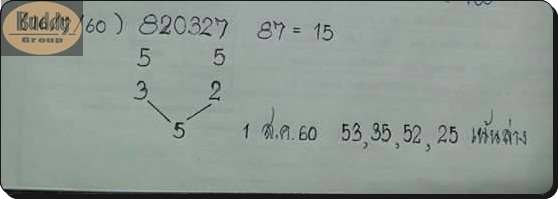 Buddy
Group
/60) 820327 87 = 15
5 5
3 2
5 1 ส.ค.60 53,35,52,25 เน้นล่าง